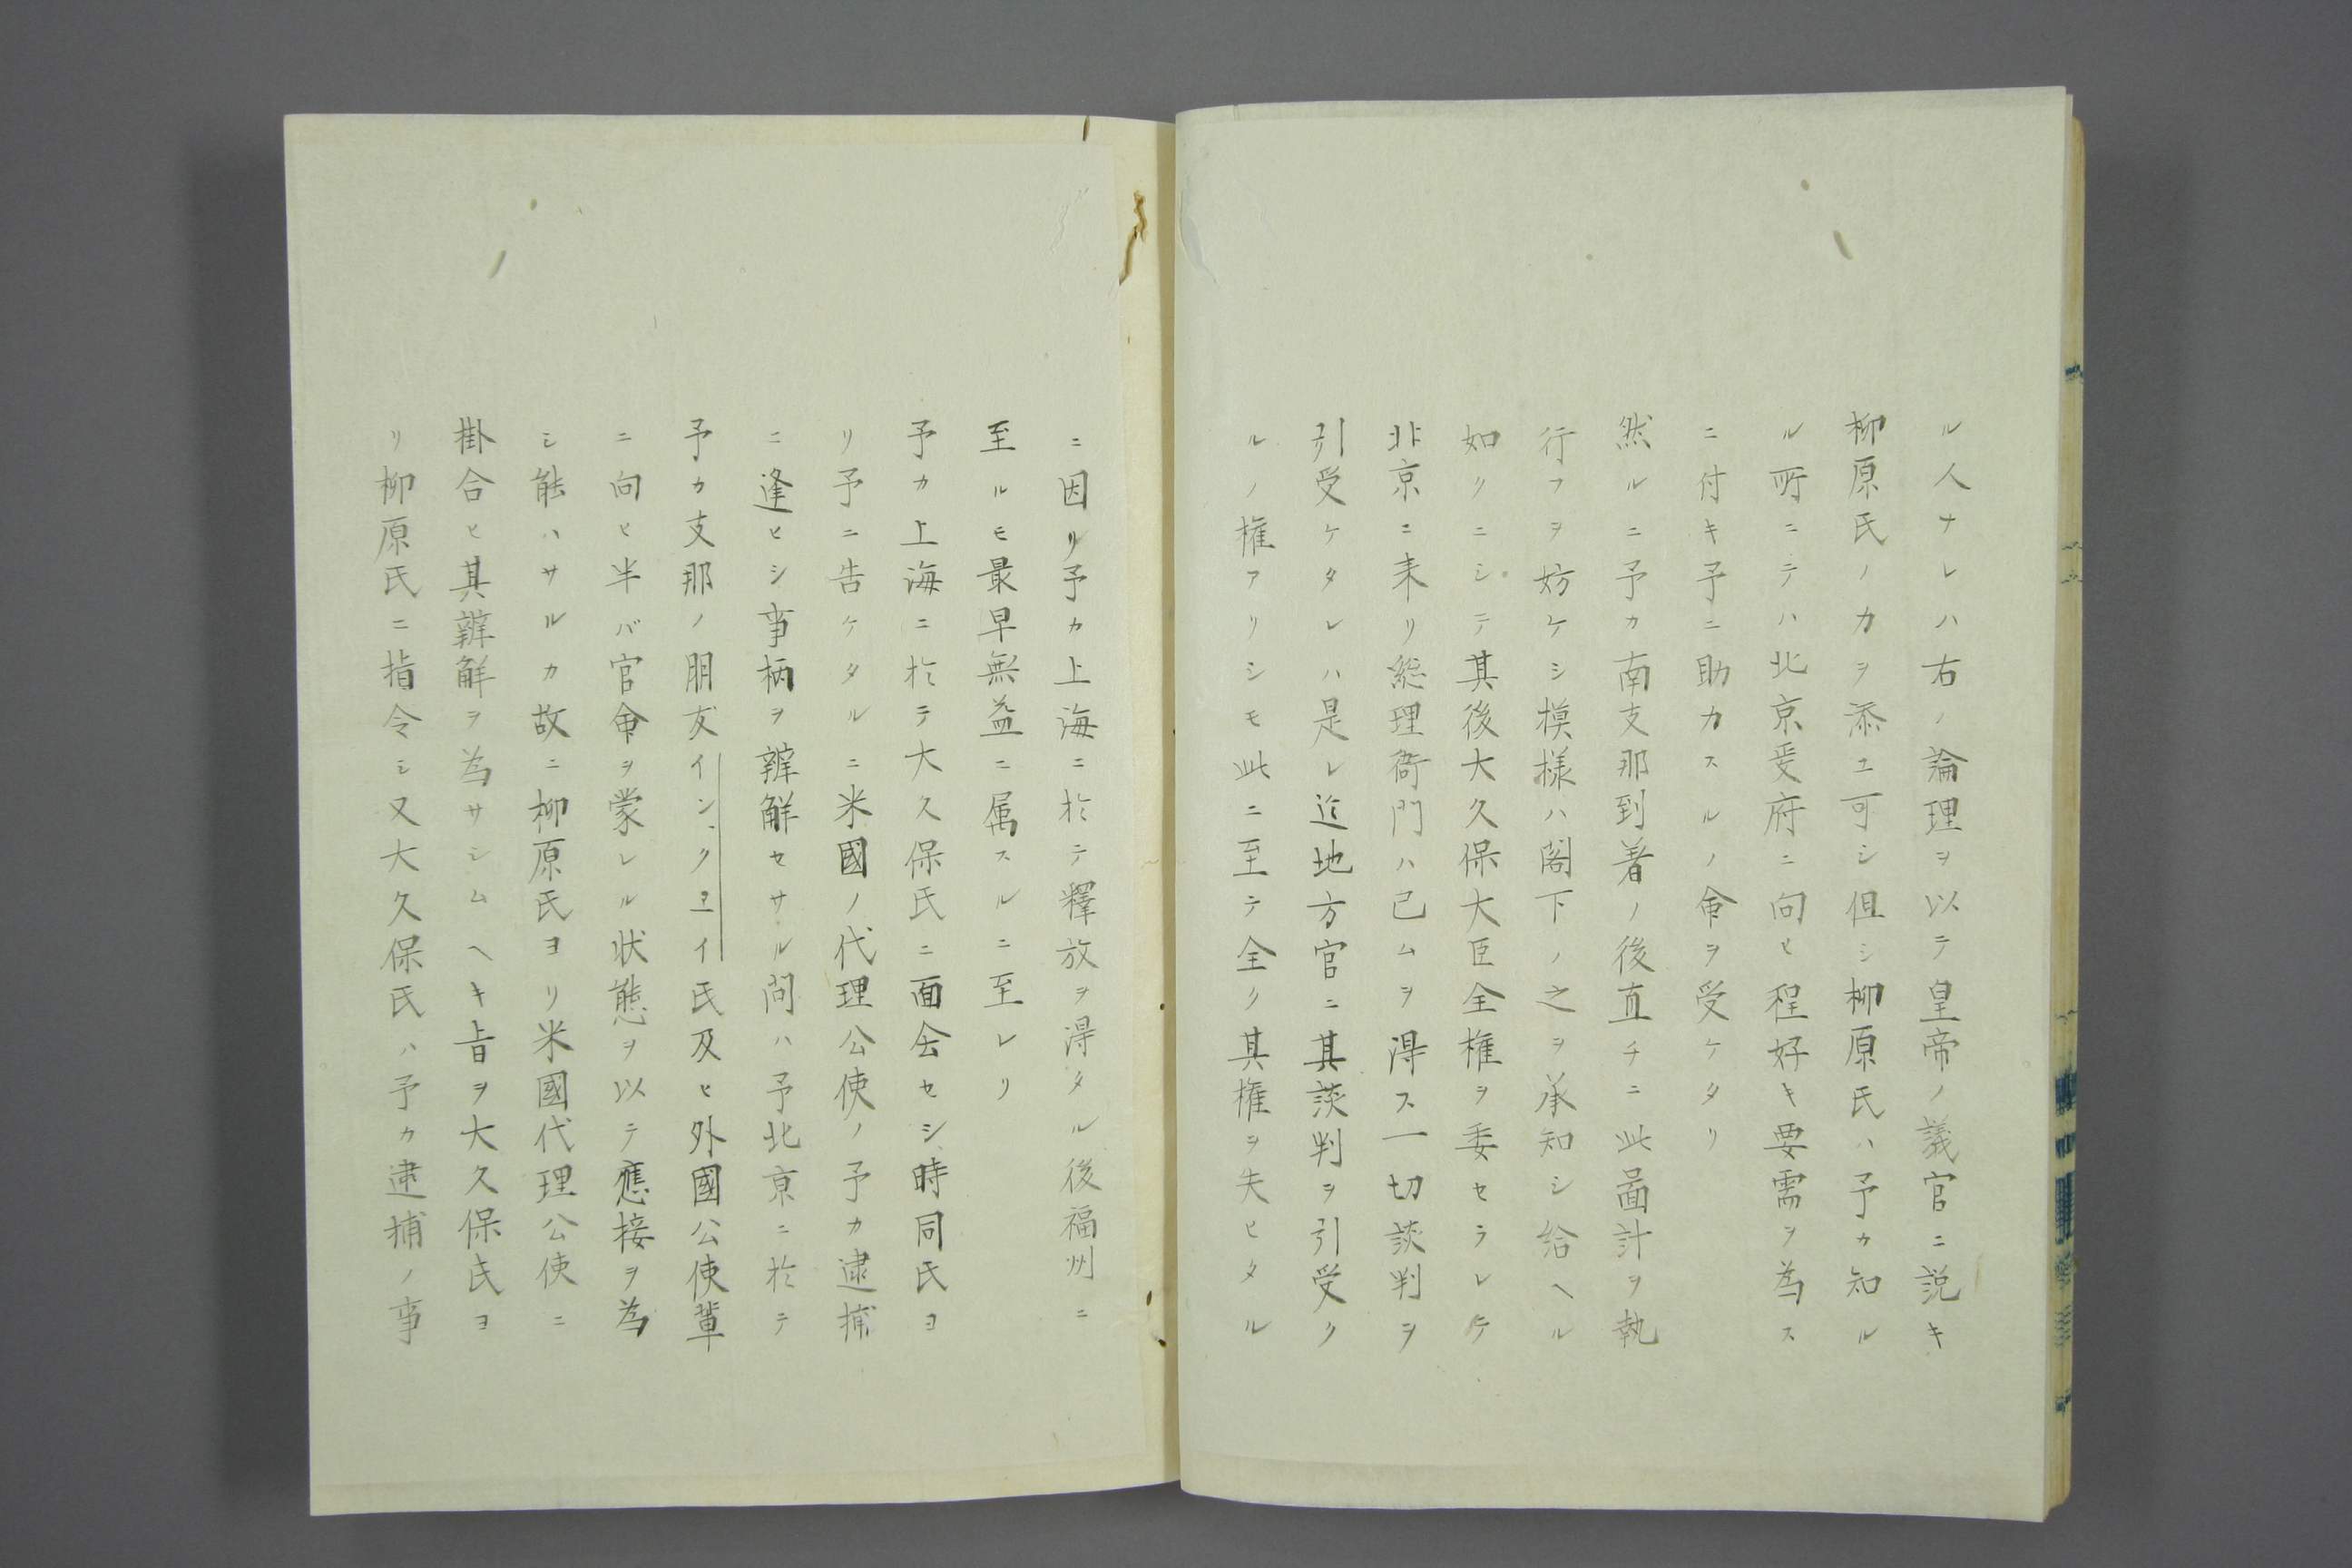 ル人ナレハ右ノ論理ヲ以テ皇帝ノ議官ニ説キ
柳原氏ノ力ヲ添エ可シ但シ柳原氏ハ予カ知ル
ル所ニテハ北京政府ニ向ヒ程好キ要需ヲ為ス
ニ付キ予ニ助力スルノ命ヲ受ケタリ
然ルニ予カ南支那到着ノ後直チニ此啚計ヲ執
行フヲ妨ケシ模様ハ閣下ノ之ヲ承知シ給ヘル
如クニシテ其後大久保大臣全権ヲ委セラレテ
北京ニ来リ総理衙門ハ已ムヲ得ス一切談判ヲ
引受ケタレハ是レ迄地方官ニ其談判ヲ引受ク
ルノ権アリシモ此ニ至テ全ク其権ヲ失ヒタル
ニ因リ予カ上海ニ於テ釋放ヲ得タル後福州ニ
至ルモ最早無益ニ属スルニ至レリ
予カ上海ニ於テ大久保氏ニ面会セシ時同氏ヨ
リ予ニ告ケタルニ米國ノ代理公使ノ予カ逮捕
ニ逢ヒシ事柄ヲ辨解セサル間ハ予北京ニ於テ
予カ支那ノ朋友イン、クヱイ氏及ヒ外國公使輩
ニ向ヒ半バ官命ヲ蒙レル状態ヲ以テ應接ヲ為
シ能ハサルカ故ニ柳原氏ヨリ米國代理公使ニ
掛合ヒ其辨解ヲ為サシムヘキ旨ヲ大久保氏ヨ
リ柳原氏ニ指令シ又大久保氏ハ予カ逮捕ノ事